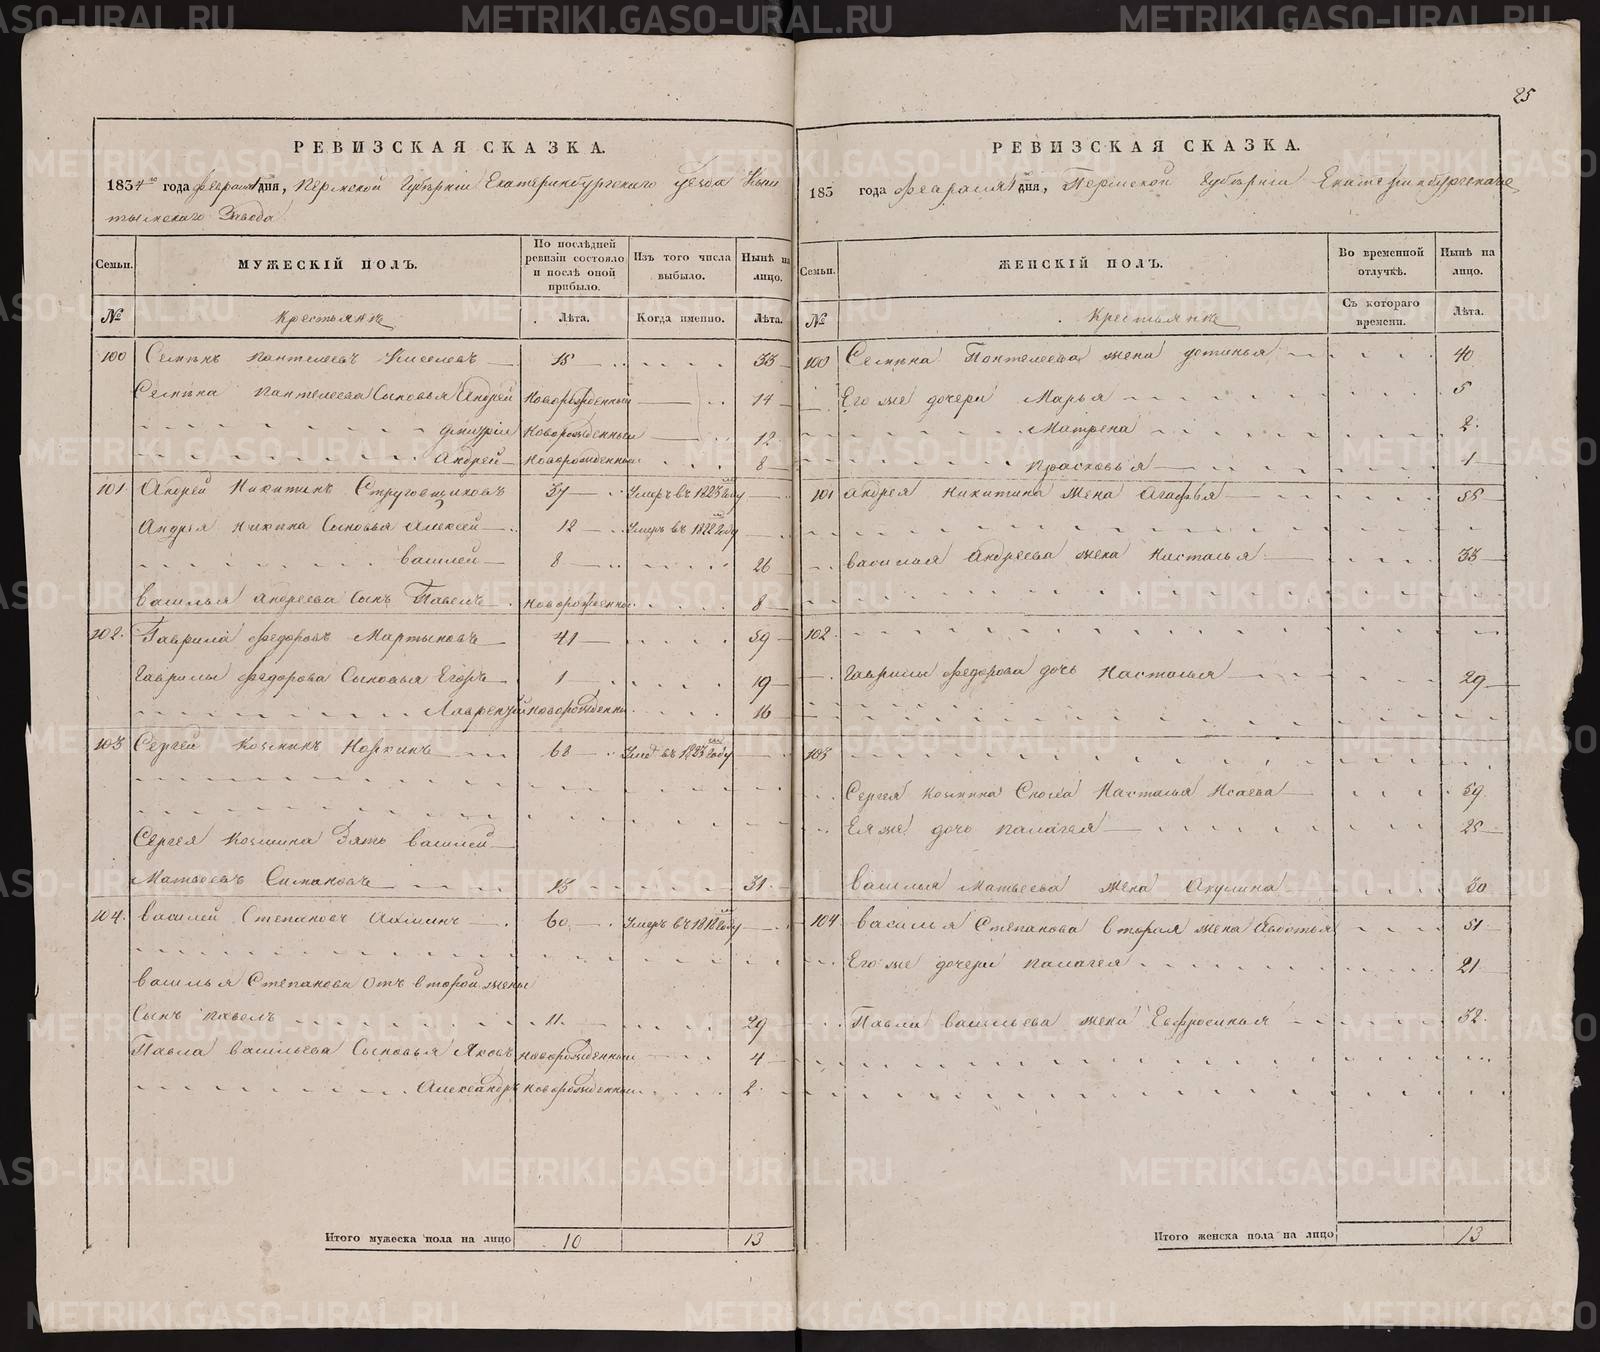 25
РЕВИЗСКАЯ СКАЗКА.
1834го года февраля дня, Пермской Губѣрнiи Екатеринбургскаго уезда Кыш
тымскаго Завода
Семьи.
МУЖЕСКIЙ ПОЛЪ.
По послѣдней ревизiи состояло и послѣ оной прибыло.
Изъ того числа выбыло.
Нынѣ на лицо.
№
Крестьянъ
Лѣта.
Когда именно.
Лѣта.
100 Семѣнъ Пантелеевъ Киселевъ 15 33
Семѣна Пантелеева Сыновья Андрей Новорожденный 14
Дмитрiй Новорожденный 12
Андрей Новорожденный 8
101 Андрей Никитинъ Струговщиковъ 37 Умеръ въ 1823 году
Андрея Никина Сыновья Алексей 12 Умеръ въ 1822 году
Василей 8 26
Василья Андреева Сынъ Павелъ Новорожденны 8
102. Гаврила Федоровъ Мартыновъ 41 59
Гаврилы Федорова Сыновья Егоръ 1 19
Лаврентiй Новорожденны 16
103 Сергей Козминъ Норкинъ 68 Умеръ въ 1823 году
Сергея Козмина Зять Василей
Матвеевъ Симановъ 13 31
104. Василей Степановъ Ахминъ 60 Умеръ въ 1818 году
Василья Степанова Отъ второй жены
Сынъ Павелъ 11. 29
Павла Васильева Сыновья Яковъ Новорожденный 4
Александръ Новорожденный 2
Итого мужеска пола на лицо 10 13
РЕВИЗСКАЯ СКАЗКА.
183 года февраля дня, Пермской Губѣрнiи Екатеринбургскаго
Семьи.
ЖЕНСКIЙ ПОЛЪ.
Во временной отлучкѣ.
Нынѣ на лицо.
№
Крестьянъ
Съ котораго времени.
Лѣта.
100 Семѣна Понтелеева жена Устинья 40
Его же дочери Марья 5
Матрена 2
Прасковья 1
101 Андрея Никитина Жена Агафья 55
Василья Андреева жена Насталья 33
102
Гаврилы Федорова дочь Насталья 29
103
Сергея Козмина Сноха Насталья Исаева 59
Ея же дочь Палагея 25
Василья Матвеева жена Акулина 30
104 Василья Степанова вторая жена Авдотья 51
Его же дочери Палагея 21
Павла Васильева жена Евфросинья 32
Итого женска пола на лицо 13
METRIKI.GASO-URAL.RU